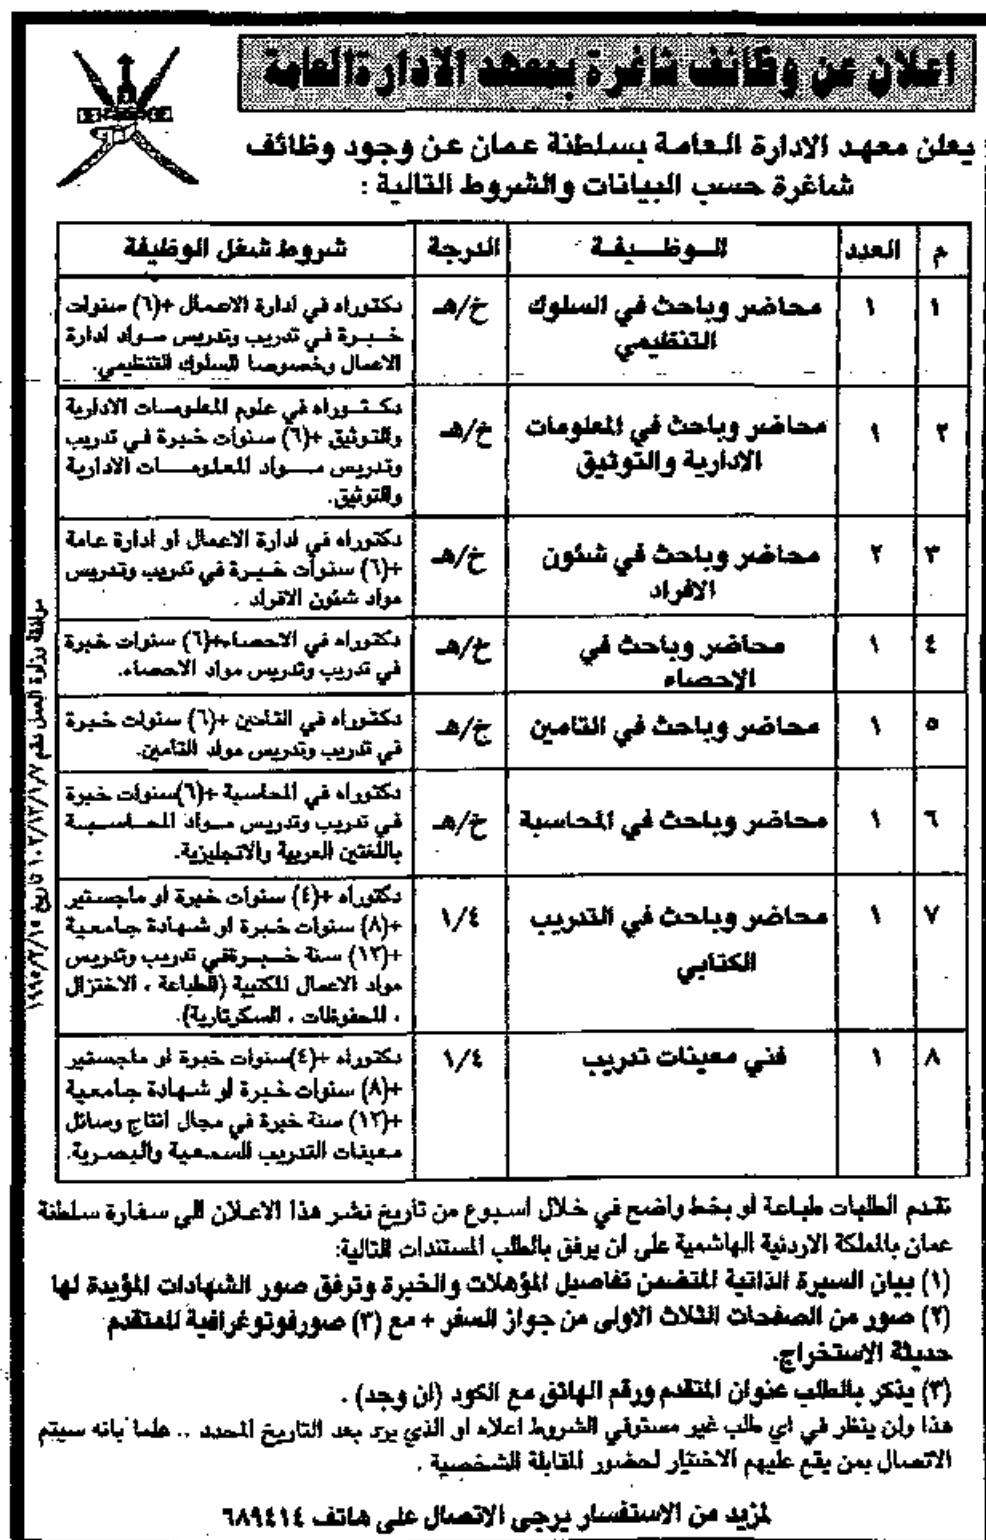 اعلان عن وظائف شاغرة بمعهد الادارة العامة
يعلن معهد الادارة العامة بسلطنة عمان عن وجود وظائف
شاغرة حسب البيانات والشروط التالية :
م العدد الـوظـــيفـة الدرجة شروط شغل الوظيفة
١ ١ محاضر وباحث في السلوك خ/هـ دكتوراه في ادارة الاعمال +(٦) سنوات
التنظيمي خـبـرة في تدريب وتدريس مـواد ادارة
الاعمال وخصوصا السلوك التنظيمي.
٢ ١ محاضر وباحث في المعلومات خ/هـ دكـتـوراه في علوم المعلومـات الادارية
الادارية والتوثيق والتوثيق +(٦) سنوات خبرة في تدريب
وتدريس مـــواد المعلومــــات الادارية
والتوثيق.
٣ ٢ محاضر وباحث في شئون خ/هـ دكتوراه في ادارة الاعمال او ادارة عامة
الافراد +(٦) سنوات خـبـرة في تدريب وتدريس
مواد شئون الافراد .
٤ ١ محاضر وباحث في خ/هـ دكتوراه في الاحصاء+(٦) سنوات خبرة
الاحصاء في تدريب وتدريس مواد الاحصاء.
٥ ١ محاضر وباحث في التامين خ/هـ دكتوراه في التامين +(٦) سنوات خبرة
في تدريب وتدريس مواد التامين.
٦ ١ محاضر وباحث في المحاسبة خ/هـ دكتوراه في المحاسبة +(٦)سنوات خبرة
في تدريب وتدريس مـواد المحـاسـبـة
باللغتين العربية والانجليزية.
٧ ١ محاضر وباحث في التدريب ١/٤ دكتوراه +(٤) سنوات خبرة او ماجستير
الكتابي +(٨) سنوات خبرة او شهادة جامعية
+(١٢) سنة خـــبـرةفي تدريب وتدريس
مواد الاعمال المكتبية (الطباعة ، الاختزال
، المحفوظات ، السكرتارية).
٨ ١ فني معينات تدريب ١/٤ دكتوراه +(٤)سنوات خبرة او ماجستير
+(٨) سنوات خبرة او شهادة جامعية
+(١٢) سنة خبرة في مجال انتاج وسائل
معينات التدريب السمعية والبصرية.
تقدم الطلبات طباعة او بخط واضح في خلال اسبوع من تاريخ نشر هذا الاعلان الى سفارة سلطنة
عمان بالمملكة الاردنية الهاشمية على ان يرفق بالطلب المستندات التالية:
(١) بيان السيرة الذاتية المتضمن تفاصيل المؤهلات والخبرة وترفق صور الشهادات المؤيدة لها
(٢) صور من الصفحات الثلاث الاولى من جواز السفر + مع (٣) صورفوتوغرافية للمتقدم
حديثة الاستخراج.
(٣) يذكر بالطلب عنوان المتقدم ورقم الهاتق مع الكود (ان وجد) .
هذا ولن ينظر في اي طلب غير مستوفي الشروط اعلاه او الذي يرد بعد التاريخ المحدد .. علما بانه سيتم
الاتصال بمن يقع عليهم الاختيار لحضور المقابلة الشخصية .
لمزيد من الاستفسار يرجى الاتصال على هاتف ٦٨٩٤١٤
موافقة وزارة العمل رقم ١٠٢/١٢/١/٧ تاريخ ١٩٩٥/٢/١٥